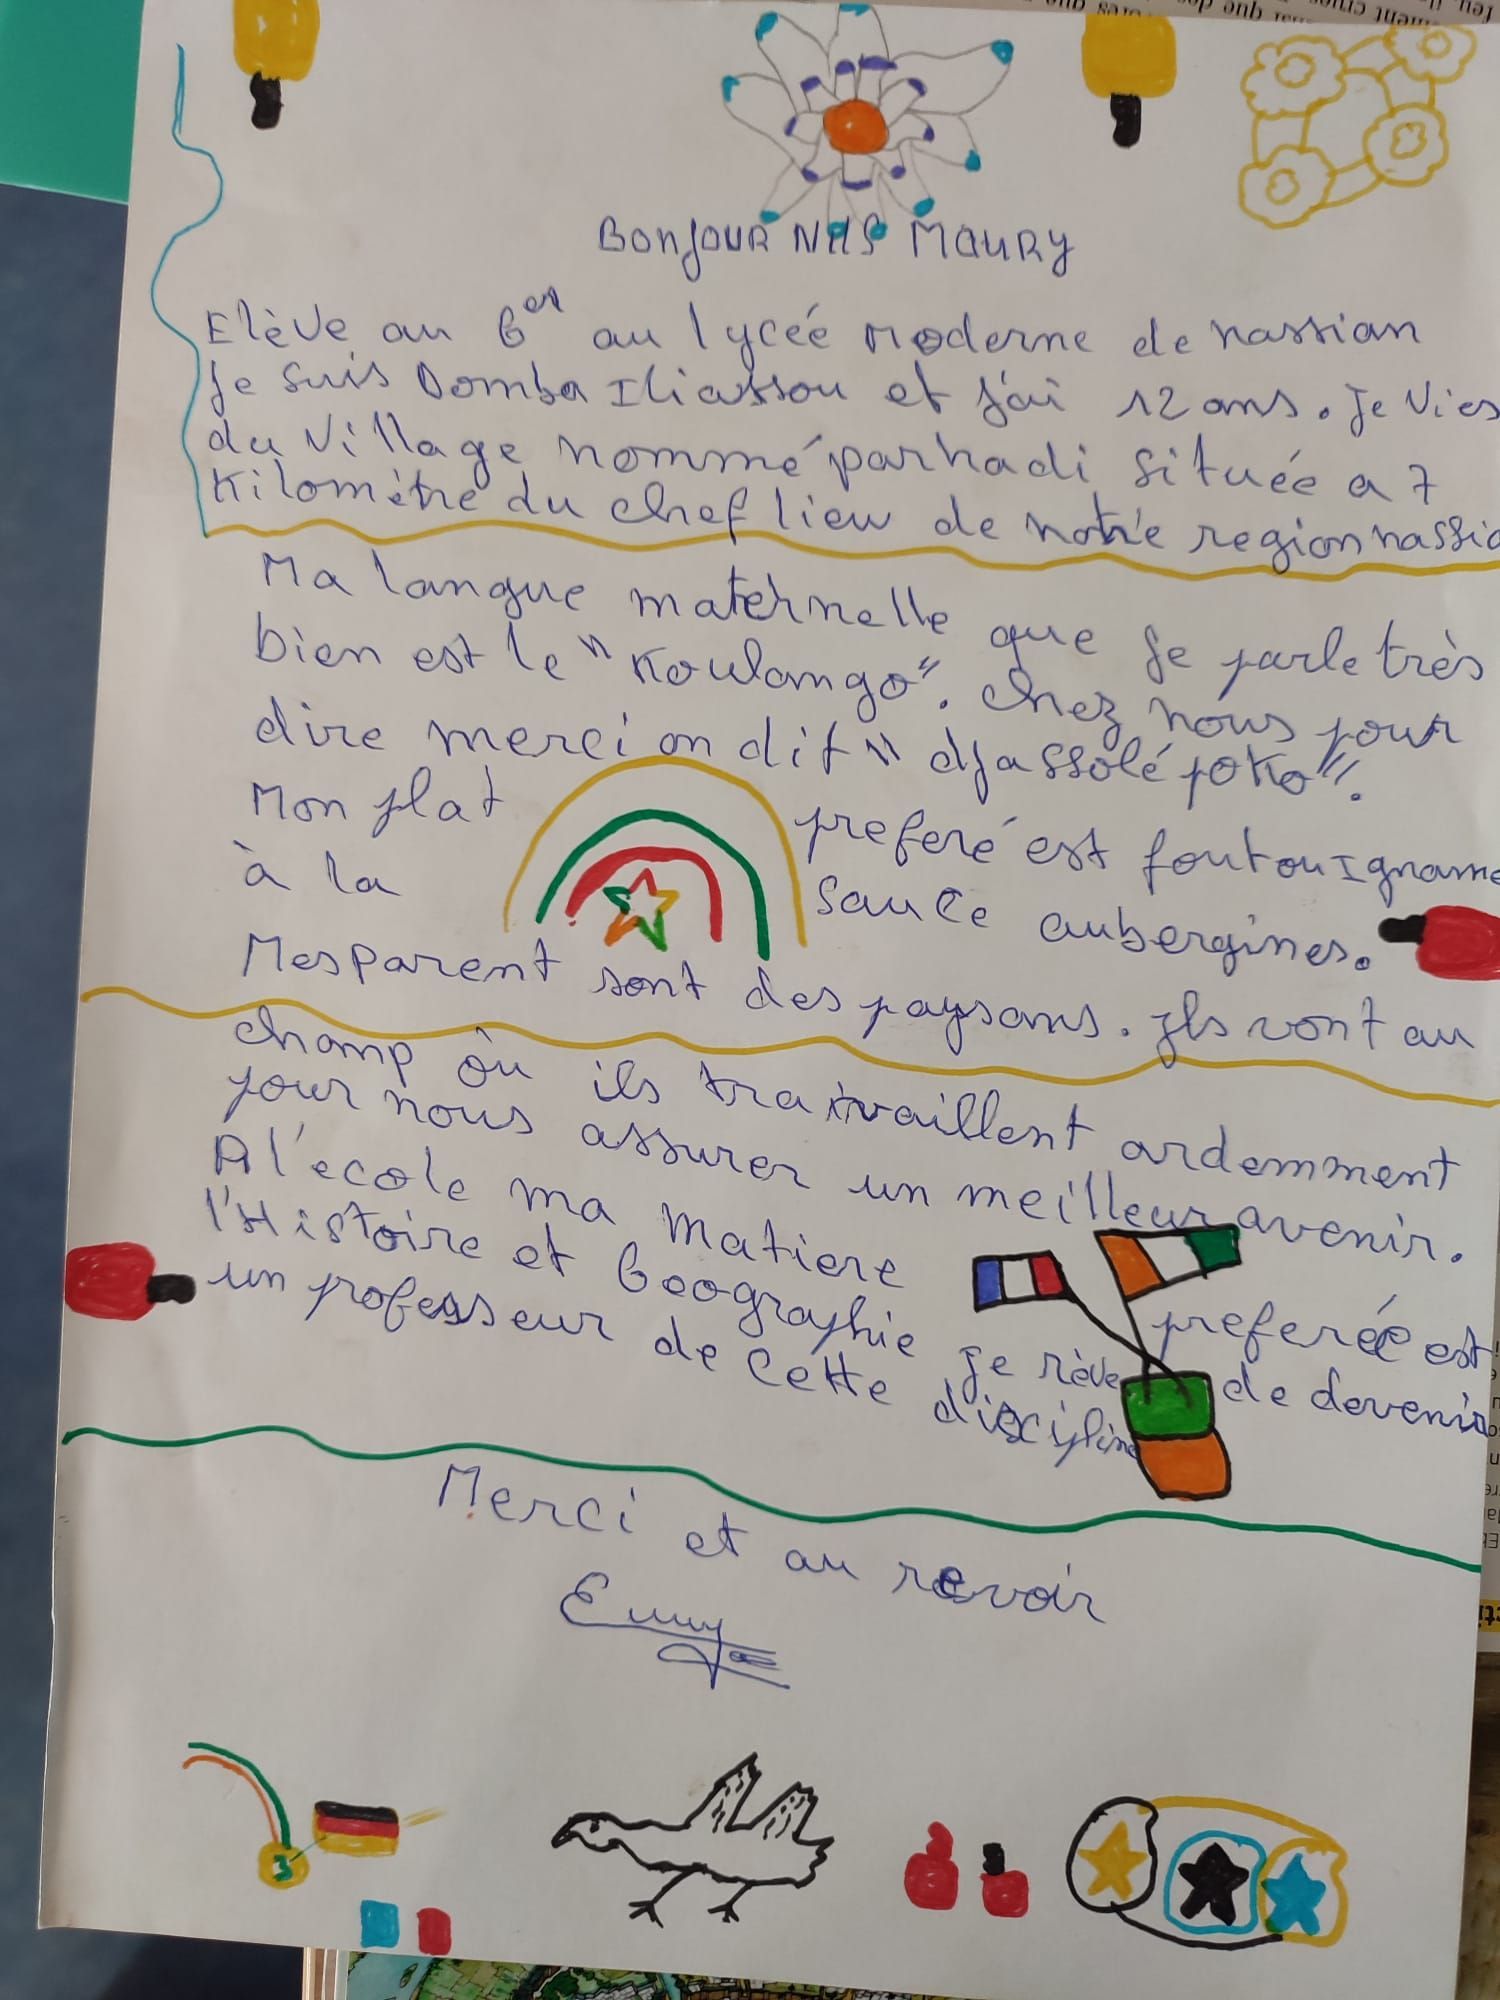 BonJOUR NHS MaURy
Elève au 6er au lycée Moderne de nassian
Je suis Domba Iliassou et j'ai 12 ans. Je Vies
du Village nommé parhadi située a 7
Kilomètre du chef lieu de notre region nassia
Ma langue maternelle que je parle très
bien est le "Koulango". Chez nous pour
dire merci on dit "djassolé poko".
Mon plat preferé est foutou Igname
à la sauce aubergines.
Mes Parent sont des paysans. Ils vont au
champ où ils travaillent ardemment
pour nous assurer un meilleur avenir.
A l'école ma matiere preferée est
l'Histoire et Geographie je rêve de devenir
un professeur de cette discipline
Merci et au revoir
3